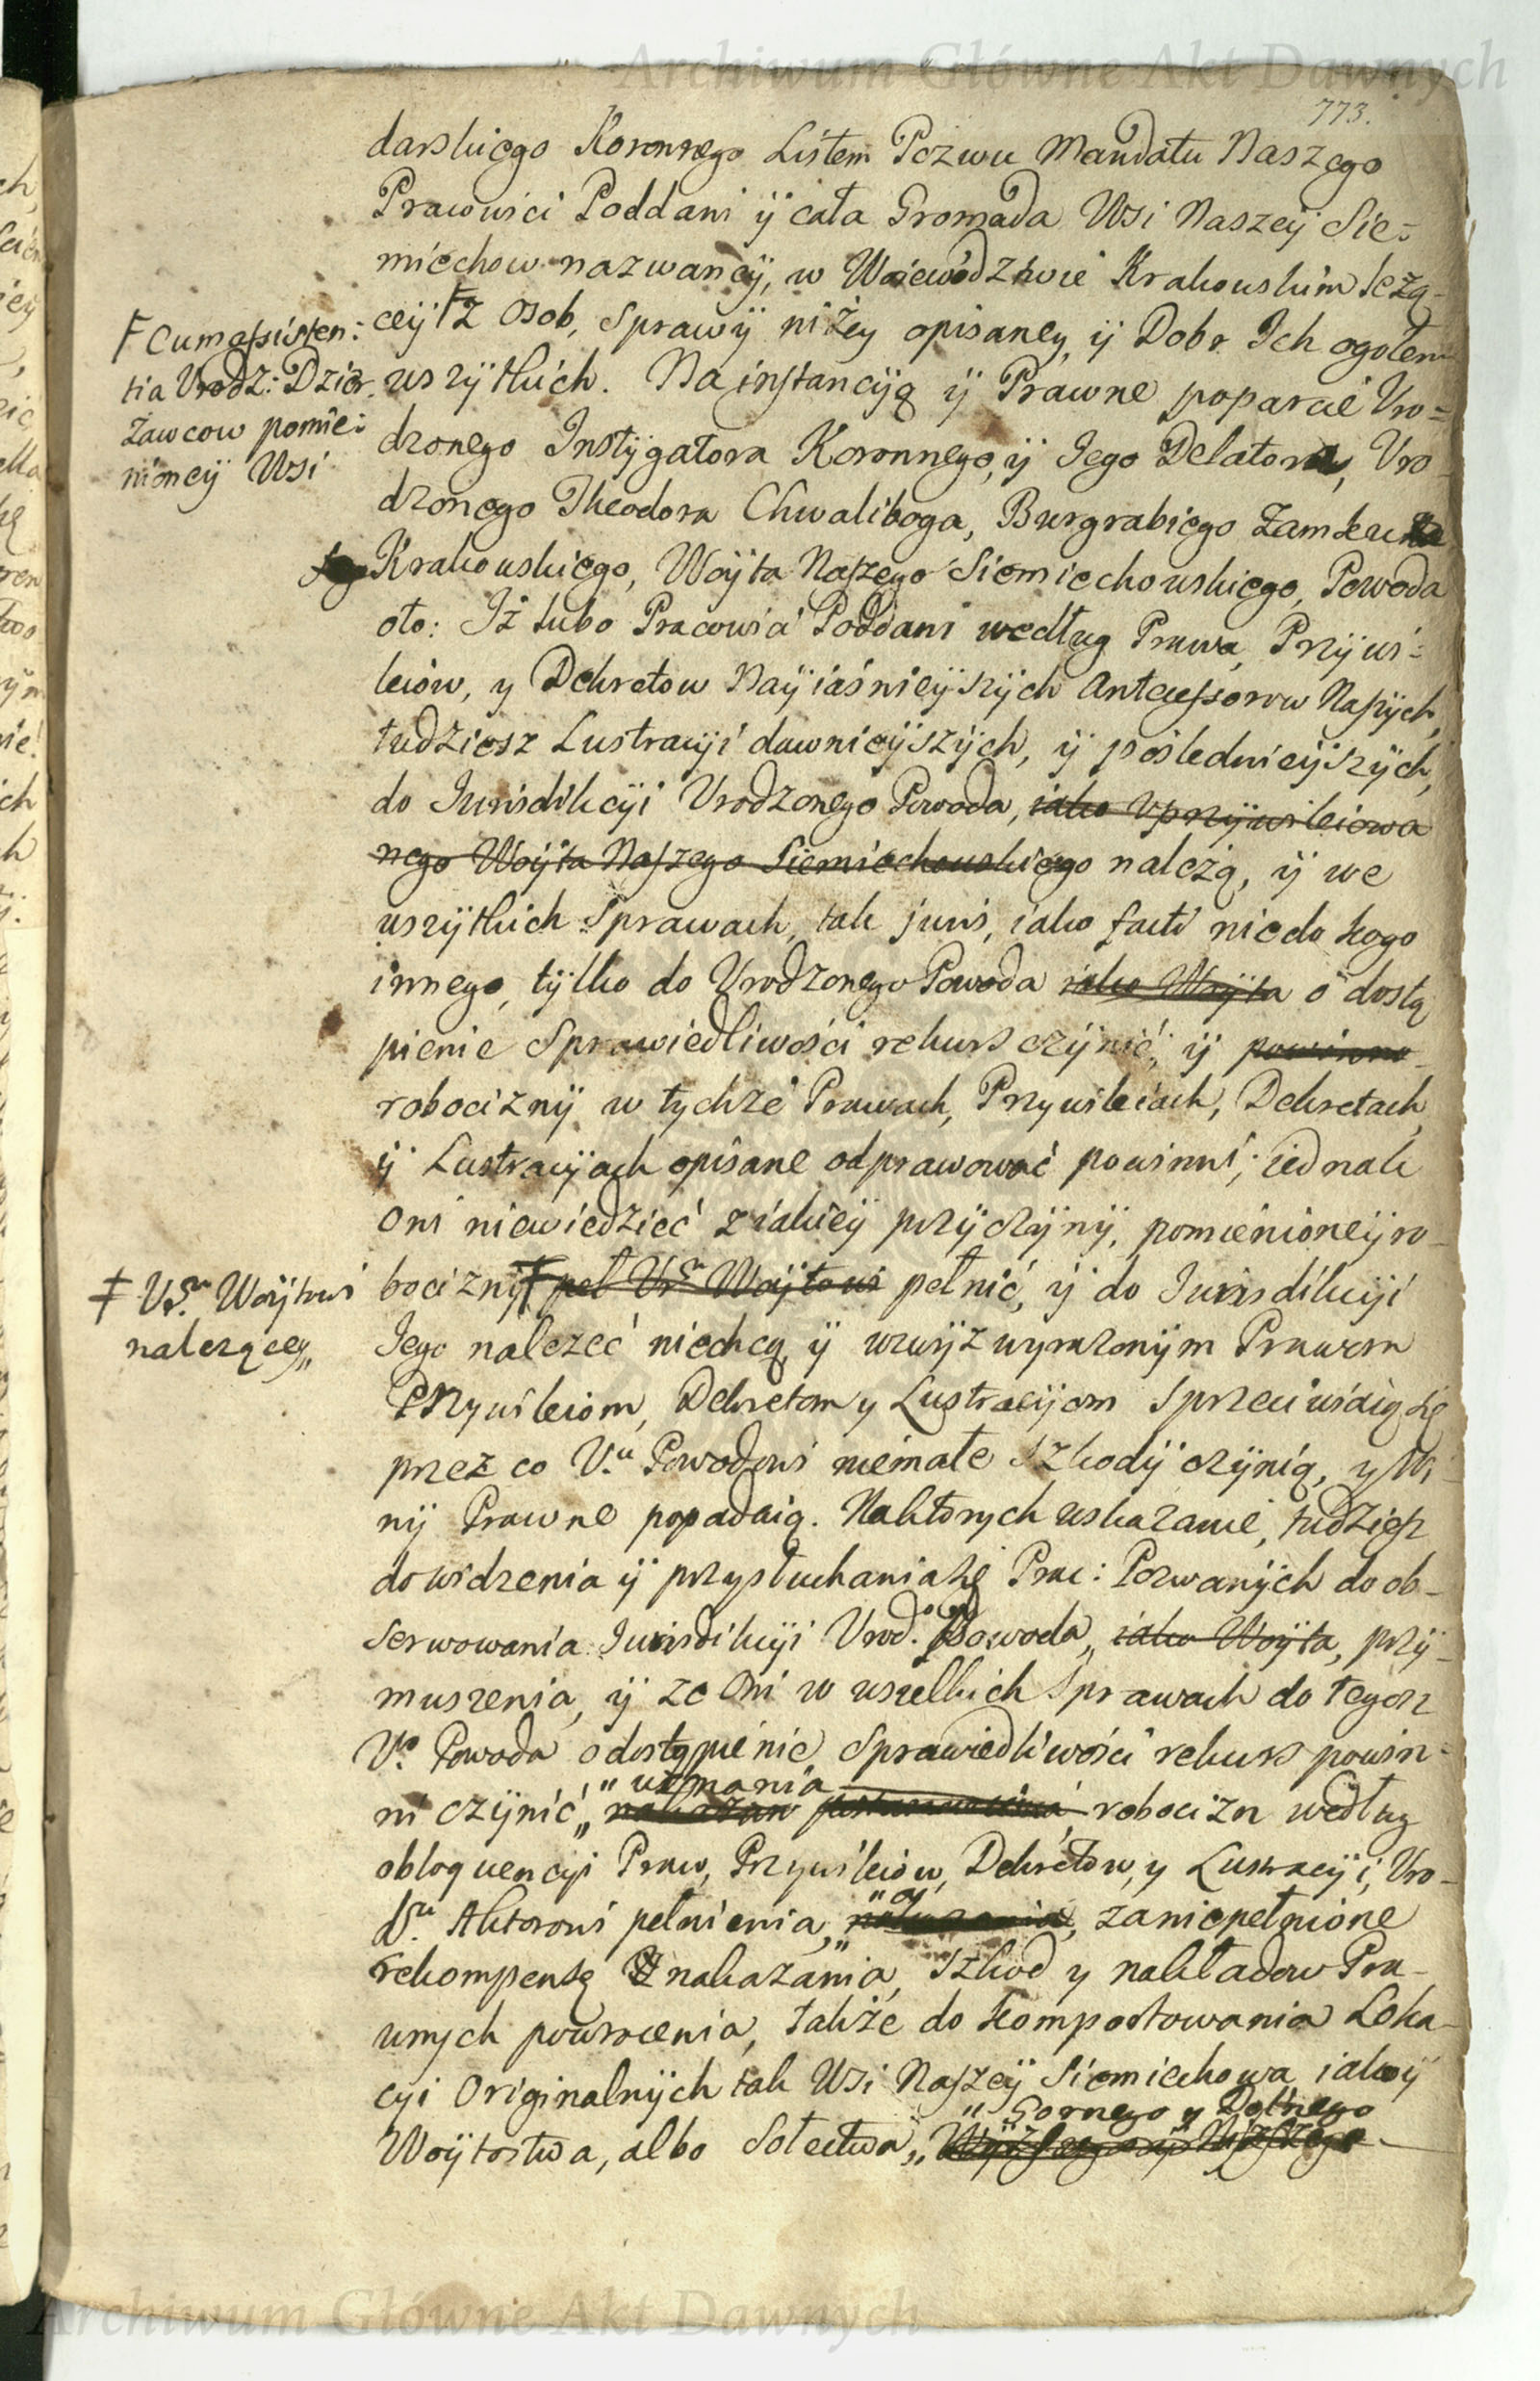 Archiwum Główne Akt Dawnych
773.
darskiego Koronnego Listem Pozwu Mandatu Naszego
Pracowici Poddani ÿ cała Gromada Wsi Naszeÿ Sie=
miechow nazwaneÿ, w Woiewodztwie Krakowskim leżą-
ceÿ Ƒ z Osob, Sprawÿ niżey opisaney, ÿ Dobr Ich ogołem
Ƒ Cum assisten:
tia Urodz: Dzier.
żawcow pomie:
nioneÿ Wsi
wszÿtkich. Na instancÿą ÿ Prawne poparcie Uro=
dzonego Instÿgatora Koronnego, ÿ Jego Delatora, Uro-
dzonego Theodora Chwaliboga, Burgrabiego Zamku
Krakowskiego, Woÿta Naszego Siemiechowskiego, Powoda
oto: Iż lubo Pracowici Poddani według Prawa, Przÿwi-
leiow, y Dekretow Naÿiaśnieÿszÿch Antecessorow Naszÿch,
tudziesz Lustracÿi dawnieÿszÿch, ÿ poslednieÿszÿch,
do Jurisdikcÿi Urodzonego Powoda, iako Uprzÿwileiowa
nego Woÿta Naszego Siemiechowskiego należą, ÿ we
wszÿtkich Sprawach, tak juris, iako facti niedo kogo
innego, tÿlko do Urodzonego Powoda iako Woÿta o dostą
pienie Sprawiedliwości rekurs czÿnić, ÿ powinne
robociznÿ w tychże Prawach, Przywileiach, Dekretach,
ÿ Lustracÿach opisane odprawować powinni; iednak
Oni niewiedzieć z iakieÿ przÿczÿnÿ, pomienioneÿ ro-
bociznÿ ǂ peł Ur. Woÿtowi pełnić, ÿ do Jurisdikcÿi
ǂ Ur. Woÿtowi
należącey,,
Jego należeć niechcą, ÿ wzwÿz wyrażonÿm Prawom
Przywileiom, Dekretom y Lustracÿom sprzeciwiaią się
przez co U. Powodowi niemałe szkodÿ czÿnią, y Wi-
nÿ Prawne popadaią. Naktorych wskazanie, tudziesz
do widzenia ÿ przysłuchania się Prac: Pozwanÿch do ob-
serwowania Jurisdikcÿi Urod. Powoda, iako Woÿta, przÿ-
muszenia, ÿ ze Oni w wszelkich Sprawach do tegosz
U. Powoda o dostąpienie Sprawiedliwości rekurs powin-
ni czÿnić,, " uznania robocizn według
obloquencÿi Praw, Przywileiow, Dekretow, y Lustracÿi, Uro-
d. Aktorowi pełnienia,, zaniepełnione
rekompensę nakazania, szkod y nakładow Pra-
wnych powrocenia, także do komportowania Loka-
cyi Originalnÿch tak Wsi Naszeÿ Siemiechowa iakoÿ
Woÿtostwa, albo Sołectwa,, " Gornego y Dolnego
Archiwum Główne Akt Dawnych